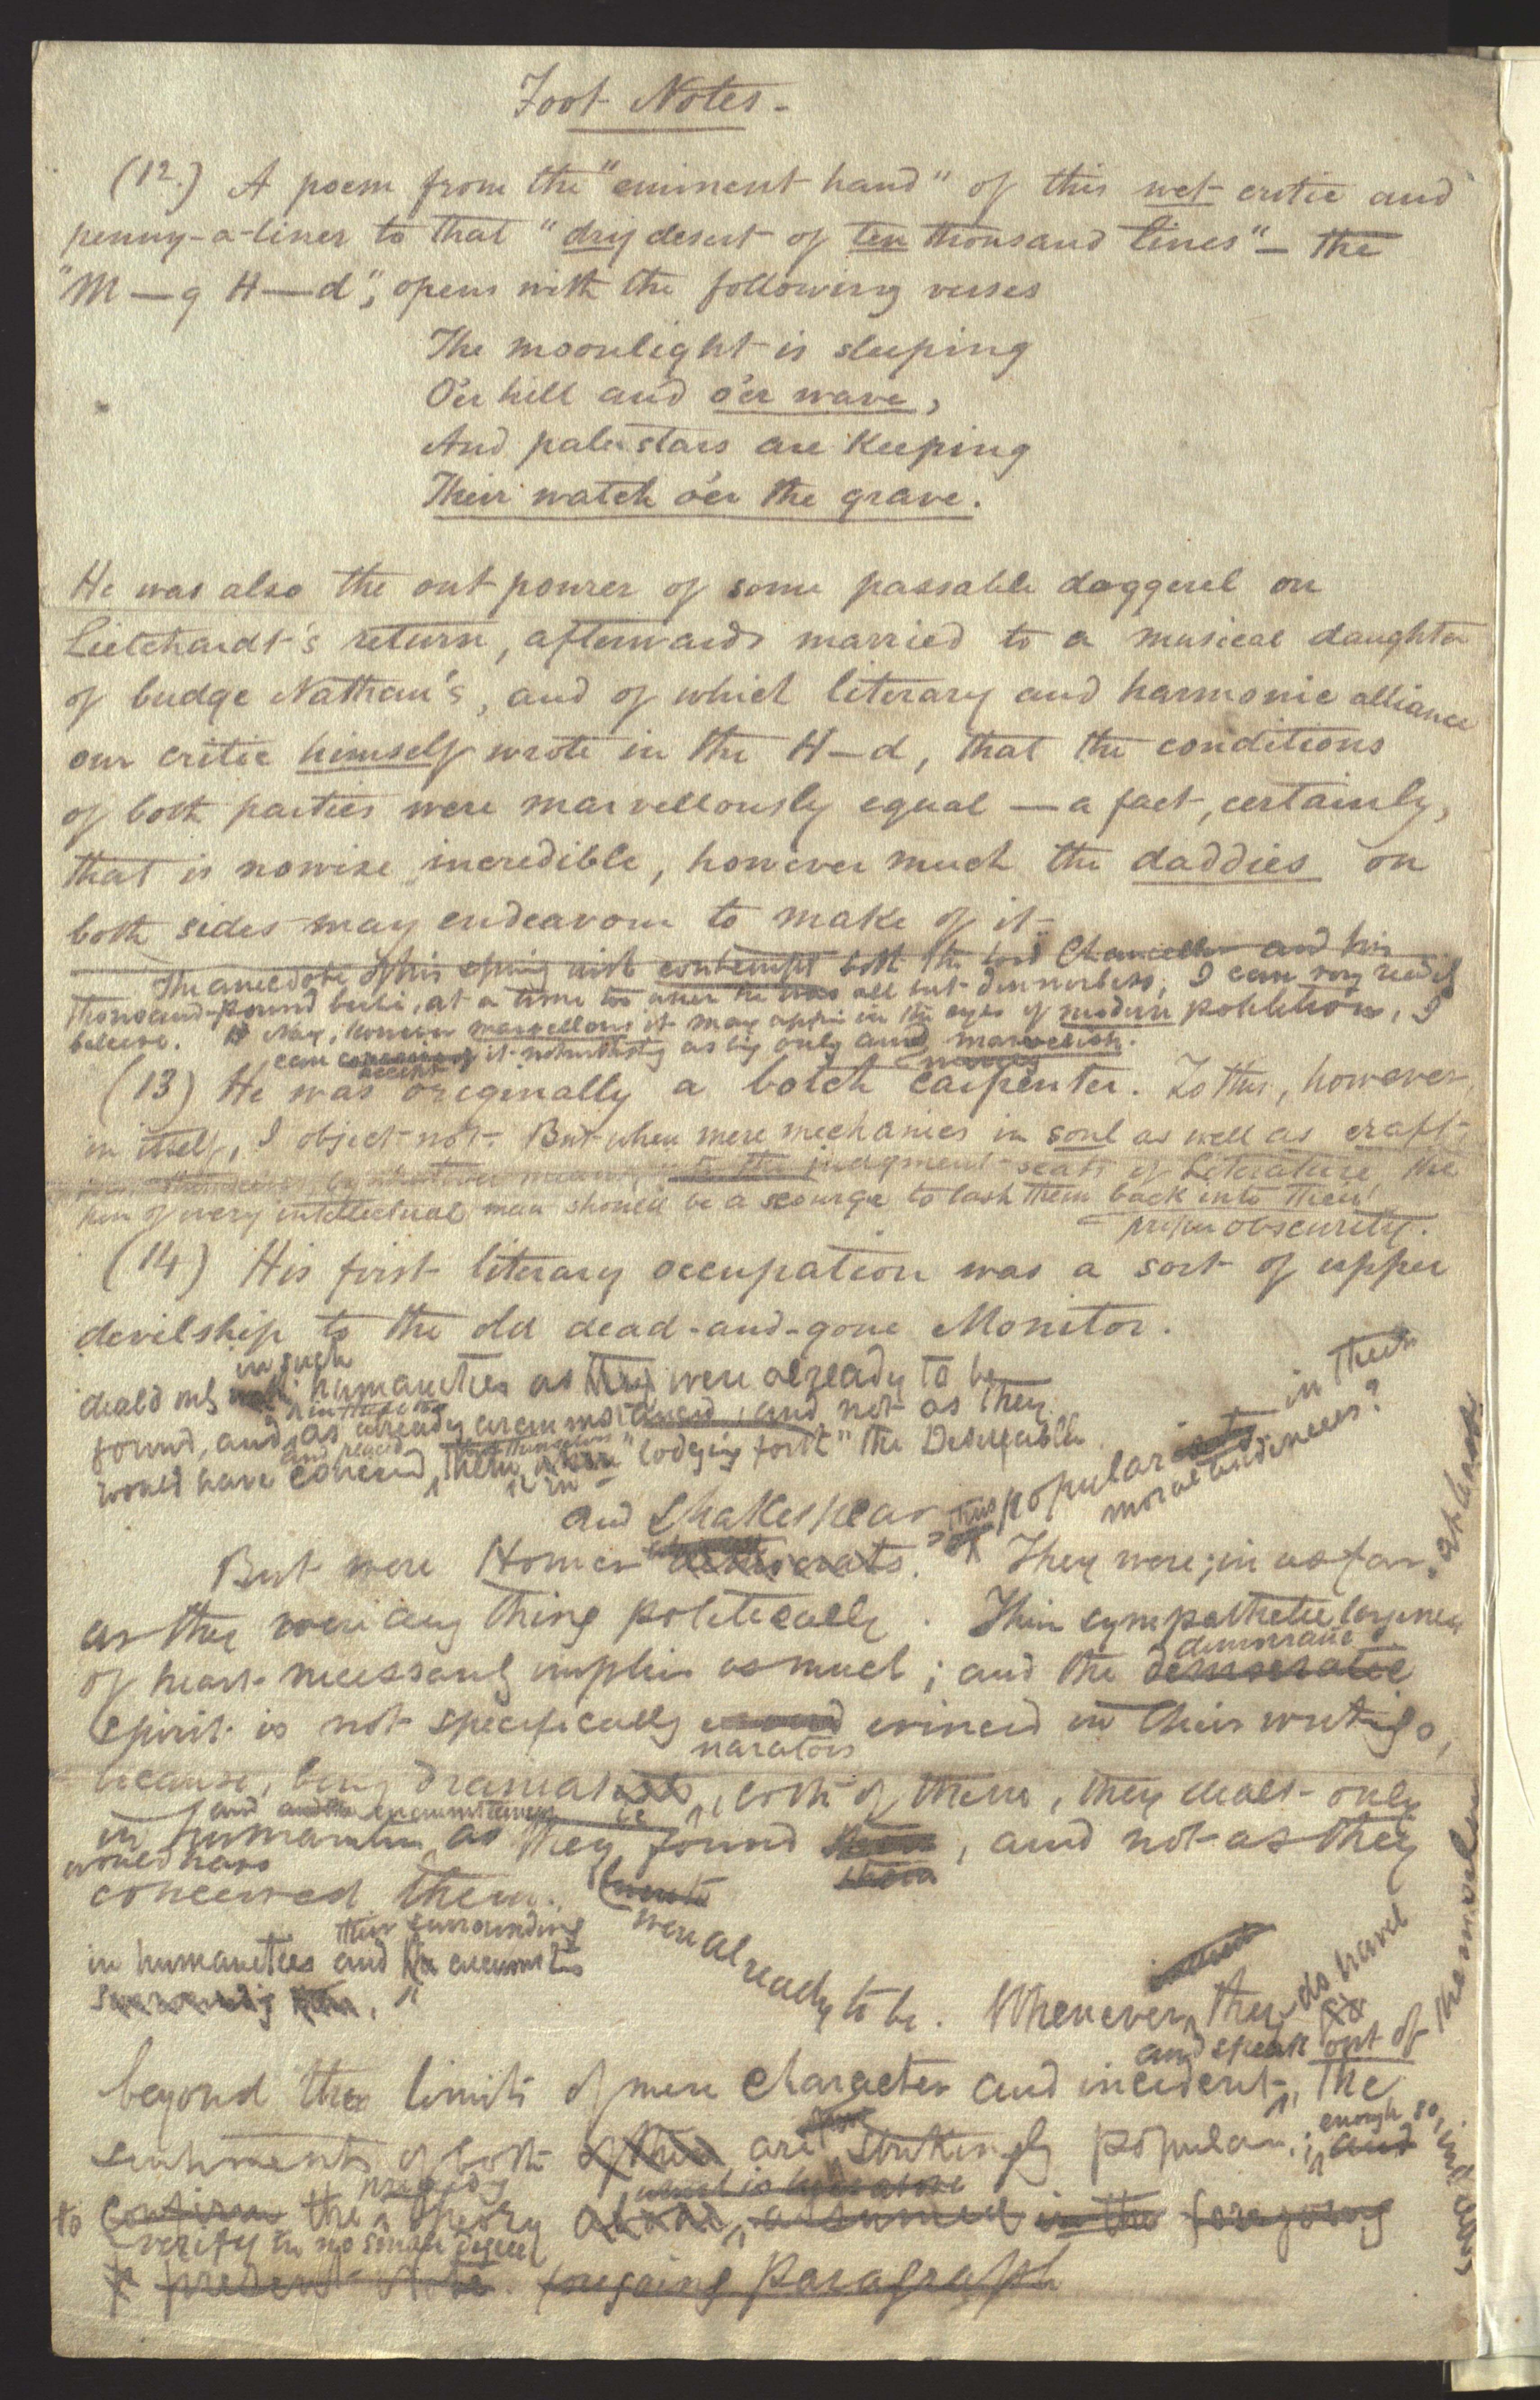 Foot Notes -
(12.) A poem from the "eminent hand" of this wet critic and
penny-a-liner to that "dry desert of ten thousand lines" - the
"M—g H—d", opens with the following verses
The moonlight is sleeping
O'er hill and o'er wave,
And pale stars are keeping
Their watch o'er the grave.
He was also the out pourer of some passable doggerel on
Lietchardt's return, afterwards married to a musical daughter
of budge Nathan's, and of which literary and harmonic alliance
our critic himself wrote in the H—d, that the conditions
of both parties were marvellously equal — a fact, certainly,
that is nowise incredible, however much the daddies on
both sides may endeavour to make of it -
The anecdote of his with contempt both the Lord Chancellor and his
thousand-pound bribe, at a time too when he was all but dinnerless, I can very readily
believe. Nay, however marvellous it may appear in the eyes of modern politicians, I
can accept it as only and
(13) He was originally a botch carpenter. To this, however,
in itself, I object not. But when mere mechanics in soul as well as craft
to the judgment-seats of Literature, the
pen of every intellectual man should be a scourge to lash them back into their
proper obscurity.
(14) His first literary occupation was a sort of upper
devilship to the old dead-and-gone Monitor.
in such
deal only humanities as were already to be
found, and as already circumstanced, and not as they
would have and placed them "lodging for't" the Desireable
and Shakespear thus popular in their
moral tendencies?
But were Homer They were; in as far at least
as they were any thing politically. Their sympathetic largeness
democratic
of heart necessarily implies as much; and the democratic
spirit is not specifically evinced in their writings,
narrators
because, being dramatists, both of them, they dealt only
in humanities and circumstances as they found them, and not as they
would have
conceived them.
were already to be. Whenever they do travel
their surrounding
in humanities and circumstances
and speak out of themselves
beyond the limits of mere character and incident, the
sentiments of both of them are strikingly popular; enough so, indeed,
to confirm the theory assumed in the foregoing
verify in no small degree
present note. foregoing paragraph